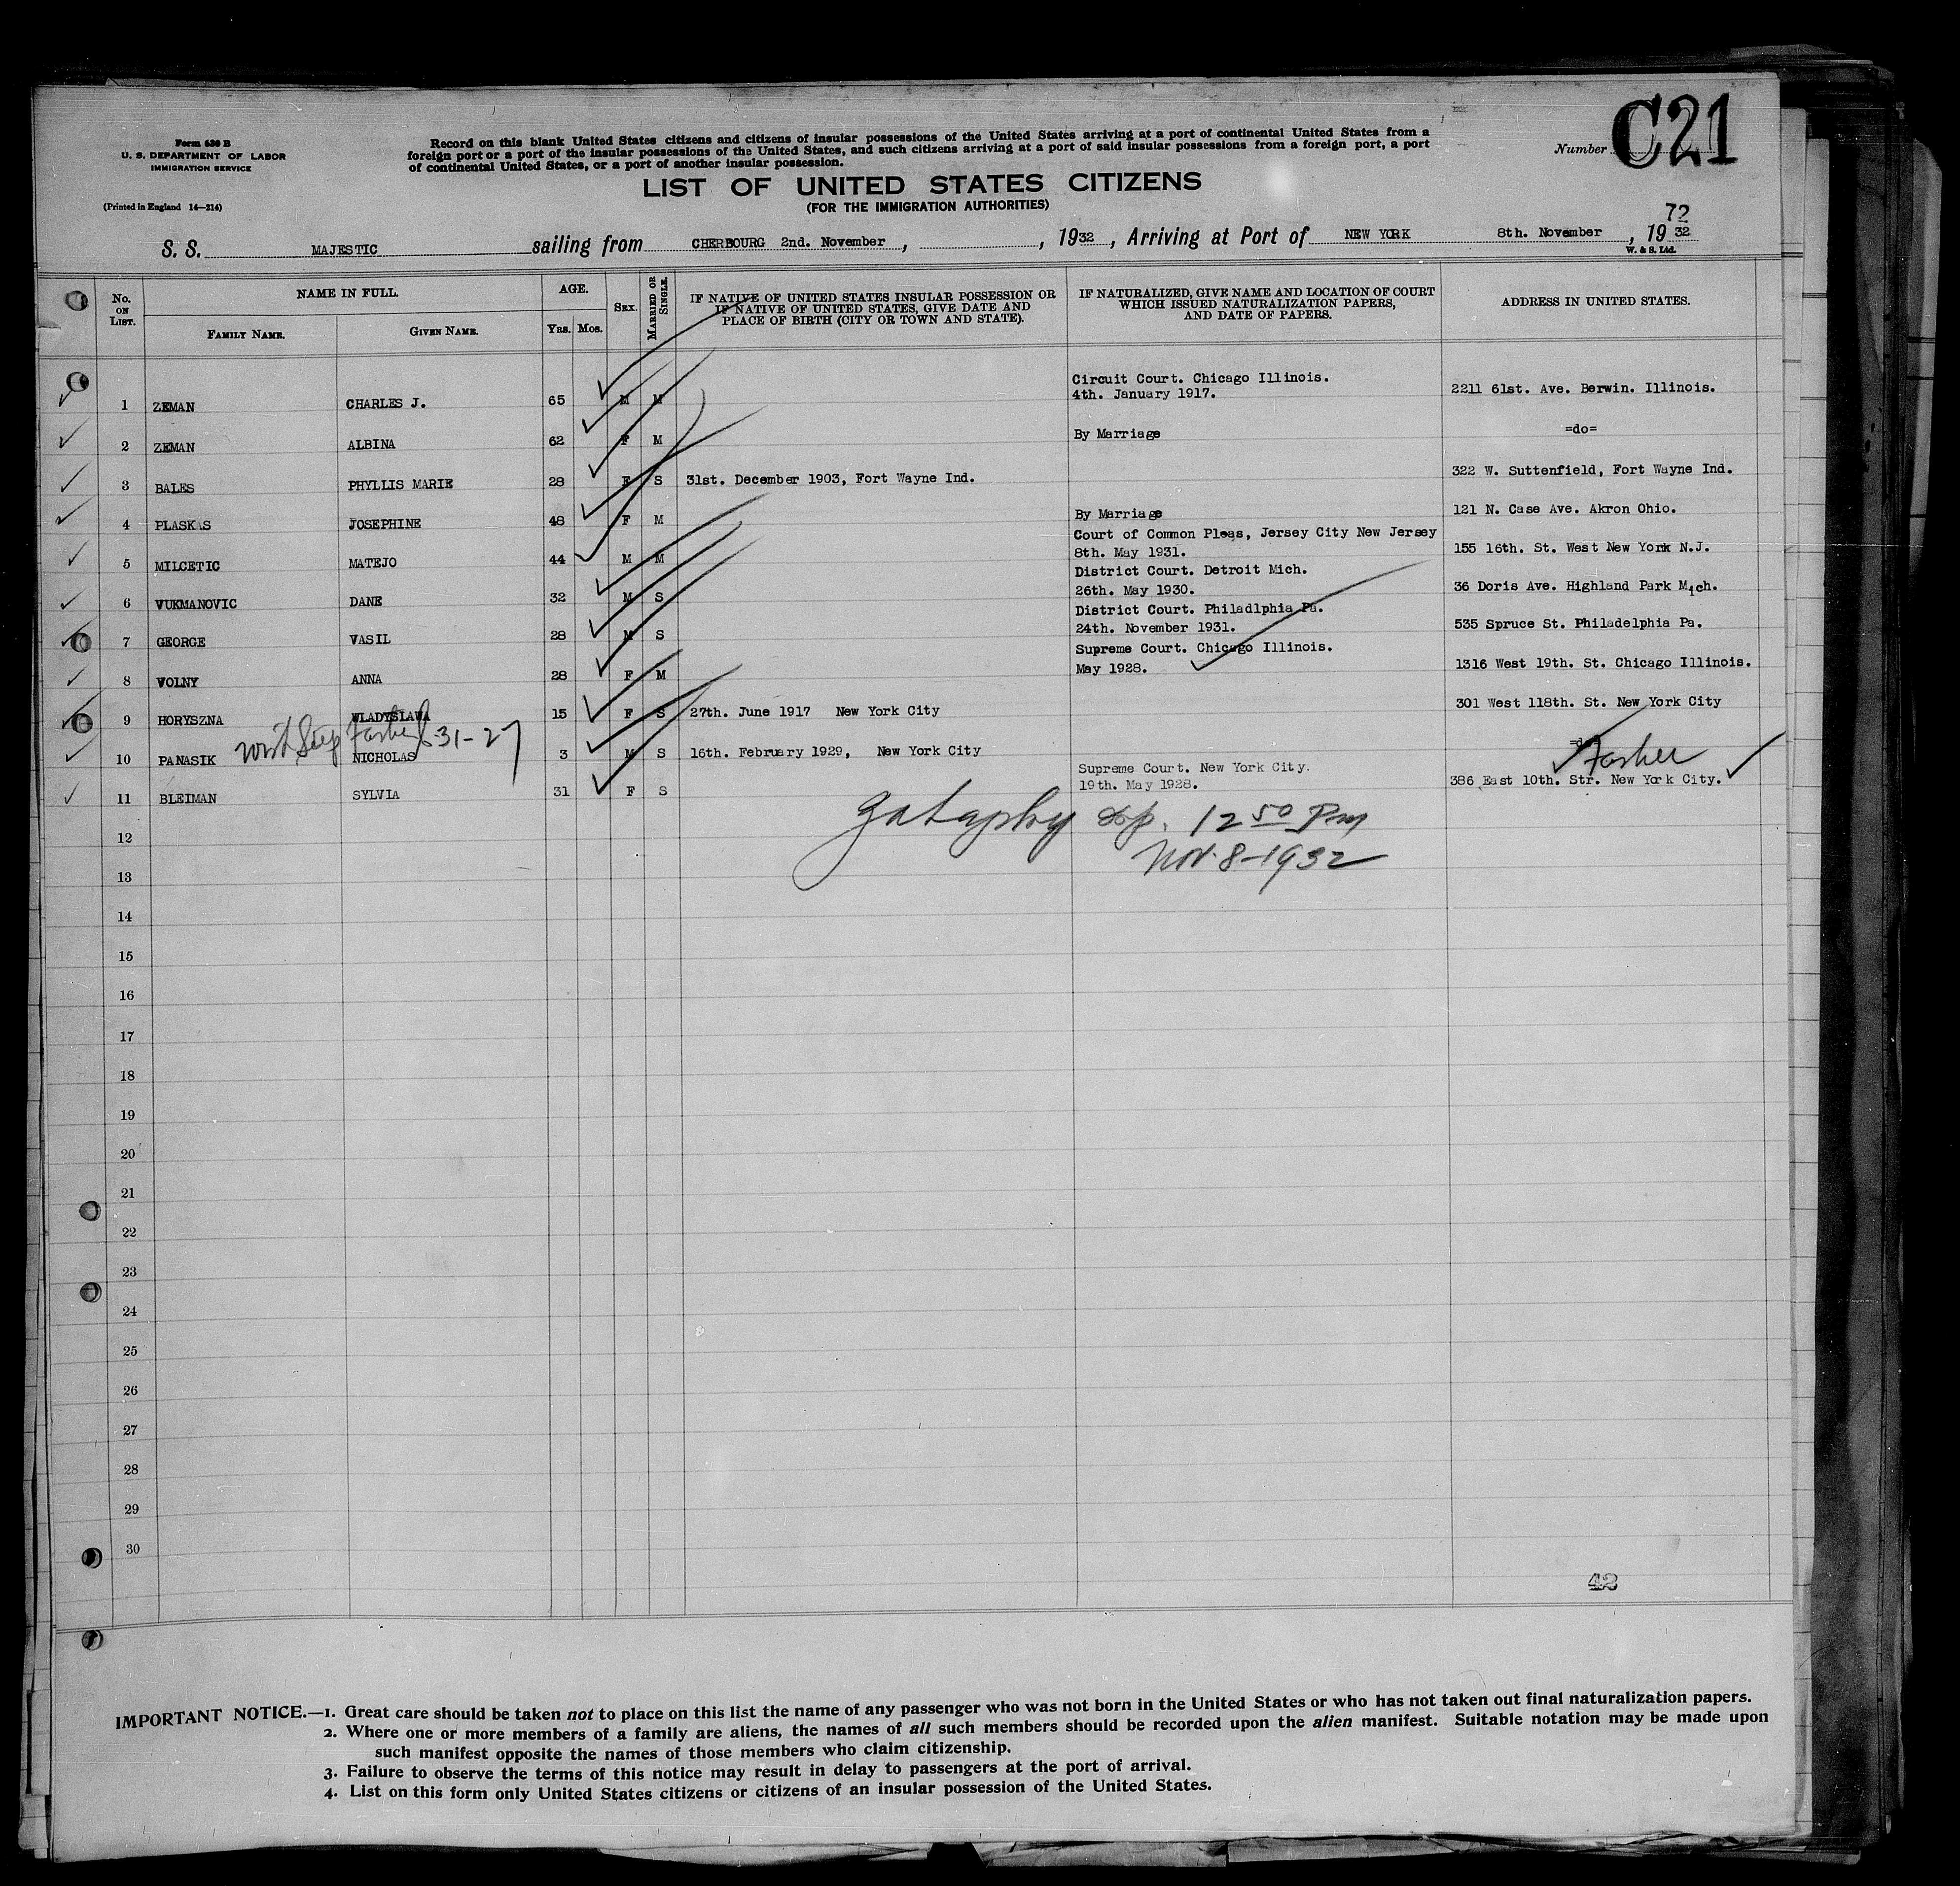 Form 630 B
U. S. DEPARTMENT OF LABOR
IMMIGRATION SERVICE
(Printed in England 14—214)
Record on this blank United States citizens and citizens of insular possessions of the United States arriving at a port of continental United States from a
foreign port or a port of the insular possessions of the United States, and such citizens arriving at a port of said insular possessions from a foreign port, a port
of continental United States, or a port of another insular possession.
Number C21
LIST OF UNITED STATES CITIZENS
(FOR THE IMMIGRATION AUTHORITIES)
72
S. S. MAJESTIC sailing from CHERBOURG 2nd. November , , 1932 , Arriving at Port of NEW YORK 8th. November , 19 32
W. & S. Ltd.
No. ON LIST. NAME IN FULL. AGE. SEX. MARRIED OR SINGLE. IF NATIVE OF UNITED STATES INSULAR POSSESSION OR IF NATIVE OF UNITED STATES, GIVE DATE AND PLACE OF BIRTH (CITY OR TOWN AND STATE). IF NATURALIZED, GIVE NAME AND LOCATION OF COURT WHICH ISSUED NATURALIZATION PAPERS, AND DATE OF PAPERS. ADDRESS IN UNITED STATES.
FAMILY NAME. GIVEN NAME. Yrs. Mos.
1 ZEMAN CHARLES J. 65 M M Circuit Court. Chicago Illinois. 4th. January 1917. 2211 61st. Ave. Berwin. Illinois.
2 ZEMAN ALBINA 62 F M By Marriage =do=
3 BALES PHYLLIS MARIE 28 F S 31st. December 1903, Fort Wayne Ind. 322 W. Suttenfield, Fort Wayne Ind.
4 PLASKAS JOSEPHINE 48 F M By Marriage 121 N. Case Ave. Akron Ohio.
5 MILCETIC MATEJO 44 M M Court of Common Pleas, Jersey City New Jersey 8th. May 1931. 155 16th. St. West New York N.J.
6 VUKMANOVIC DANE 32 M S District Court. Detroit Mich. 26th. May 1930. 36 Doris Ave. Highland Park Mich.
7 GEORGE VASIL 28 M S District Court. Philadlphia Pa. 24th. November 1931. 535 Spruce St. Philadelphia Pa.
8 VOLNY ANNA 28 F M Supreme Court. Chicago Illinois. May 1928. 1316 West 19th. St. Chicago Illinois.
9 HORYSZNA WLADYSLAWA 15 F S 27th. June 1917 New York City 301 West 118th. St. New York City
with Step Father 31-27
10 PANASIK NICHOLAS 3 M S 16th. February 1929, New York City =do= Father
11 BLEIMAN SYLVIA 31 F S Supreme Court. New York City. 19th. May 1928. 386 East 10th. Str. New York City.
12 50 Pm
Nov. 8-1932
12
13
14
15
16
17
18
19
20
21
22
23
24
25
26
27
28
29
30
IMPORTANT NOTICE.—1. Great care should be taken not to place on this list the name of any passenger who was not born in the United States or who has not taken out final naturalization papers.
2. Where one or more members of a family are aliens, the names of all such members should be recorded upon the alien manifest. Suitable notation may be made upon
such manifest opposite the names of those members who claim citizenship.
3. Failure to observe the terms of this notice may result in delay to passengers at the port of arrival.
4. List on this form only United States citizens or citizens of an insular possession of the United States.